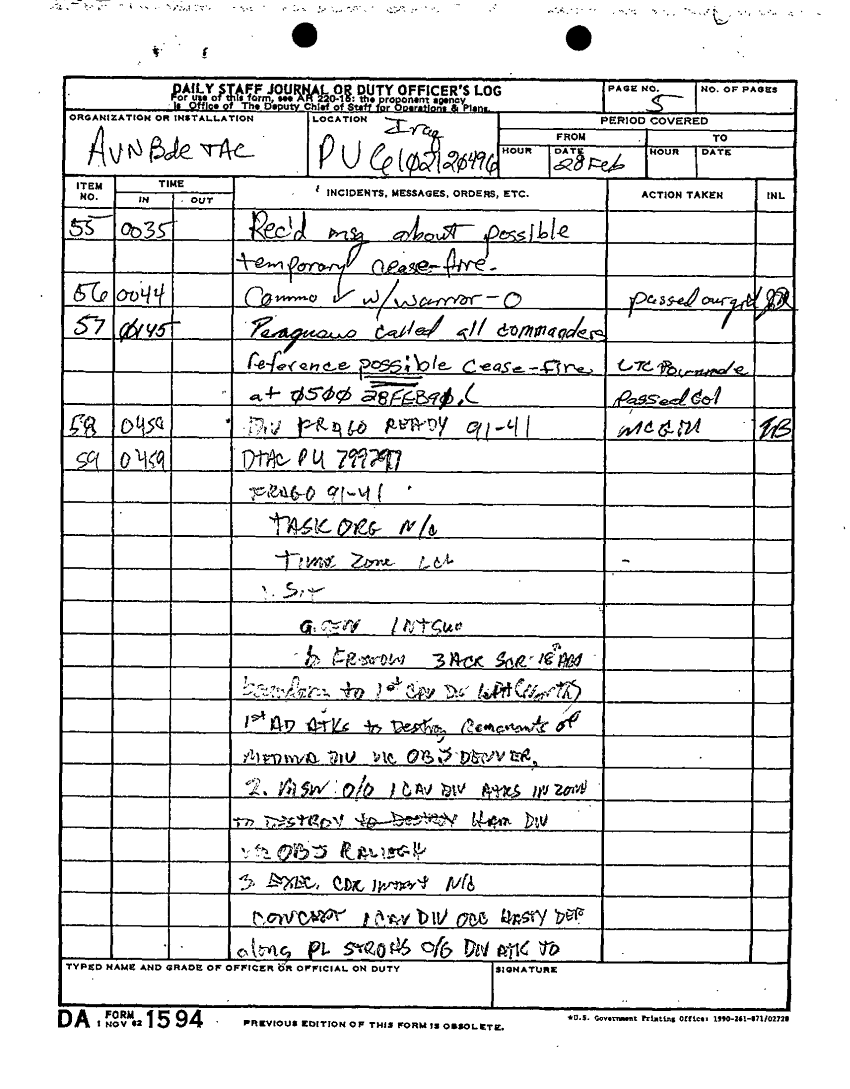 DAILY STAFF JOURNAL OR DUTY OFFICER'S LOG
For use of this form, see AR 220-15; the proponent agency
is Office of The Deputy Chief of Staff for Operations & Plans.
PAGE NO.
5
NO. OF PAGES
ORGANIZATION OR INSTALLATION
AVN Bde TAC
LOCATION
Iraq
PERIOD COVERED
FROM
TO
HOUR
DATE
28 Feb
HOUR
DATE
ITEM NO.
TIME
IN
OUT
INCIDENTS, MESSAGES, ORDERS, ETC.
ACTION TAKEN
INL
55 0035 Rec'd msg about possible
temporary cease-fire.
56 0044 Commo ✓ w/Warrior-O passed our grid
57 0145 Pegasus called all commanders
reference possible cease-fire LTC
at 0500 28FEB90. Passed Col
58 0459 DIV FRAGO READY 91-41 MCGILL
59 0459 DTAC PU 799297
FRAGO 91-41
TASK ORG N/C
Time Zone LCL
1. Sit
a. EN INTSUM
b. 3 ACR SCR 18th ABN
to 1st CAV DIV Left (North)
1st AD ATKs to Destroy Remenants of
MEDINA DIV VIC OBJ DENVER.
2. MSN: O/O 1 CAV DIV ATKS IN ZONE
TO DESTROY to Destroy HAM DIV
VIC OBJ RALIEGH
3. EXEC. CDR intent N/C
CONCEPT 1 CAV DIV OCC HASTY DEF
along PL STRONS O/O DIV ATK TO
TYPED NAME AND GRADE OF OFFICER OR OFFICIAL ON DUTY
SIGNATURE
DA FORM 1 NOV 62 1594
PREVIOUS EDITION OF THIS FORM IS OBSOLETE.
*U.S. Government Printing Office: 1990-261-871/02720